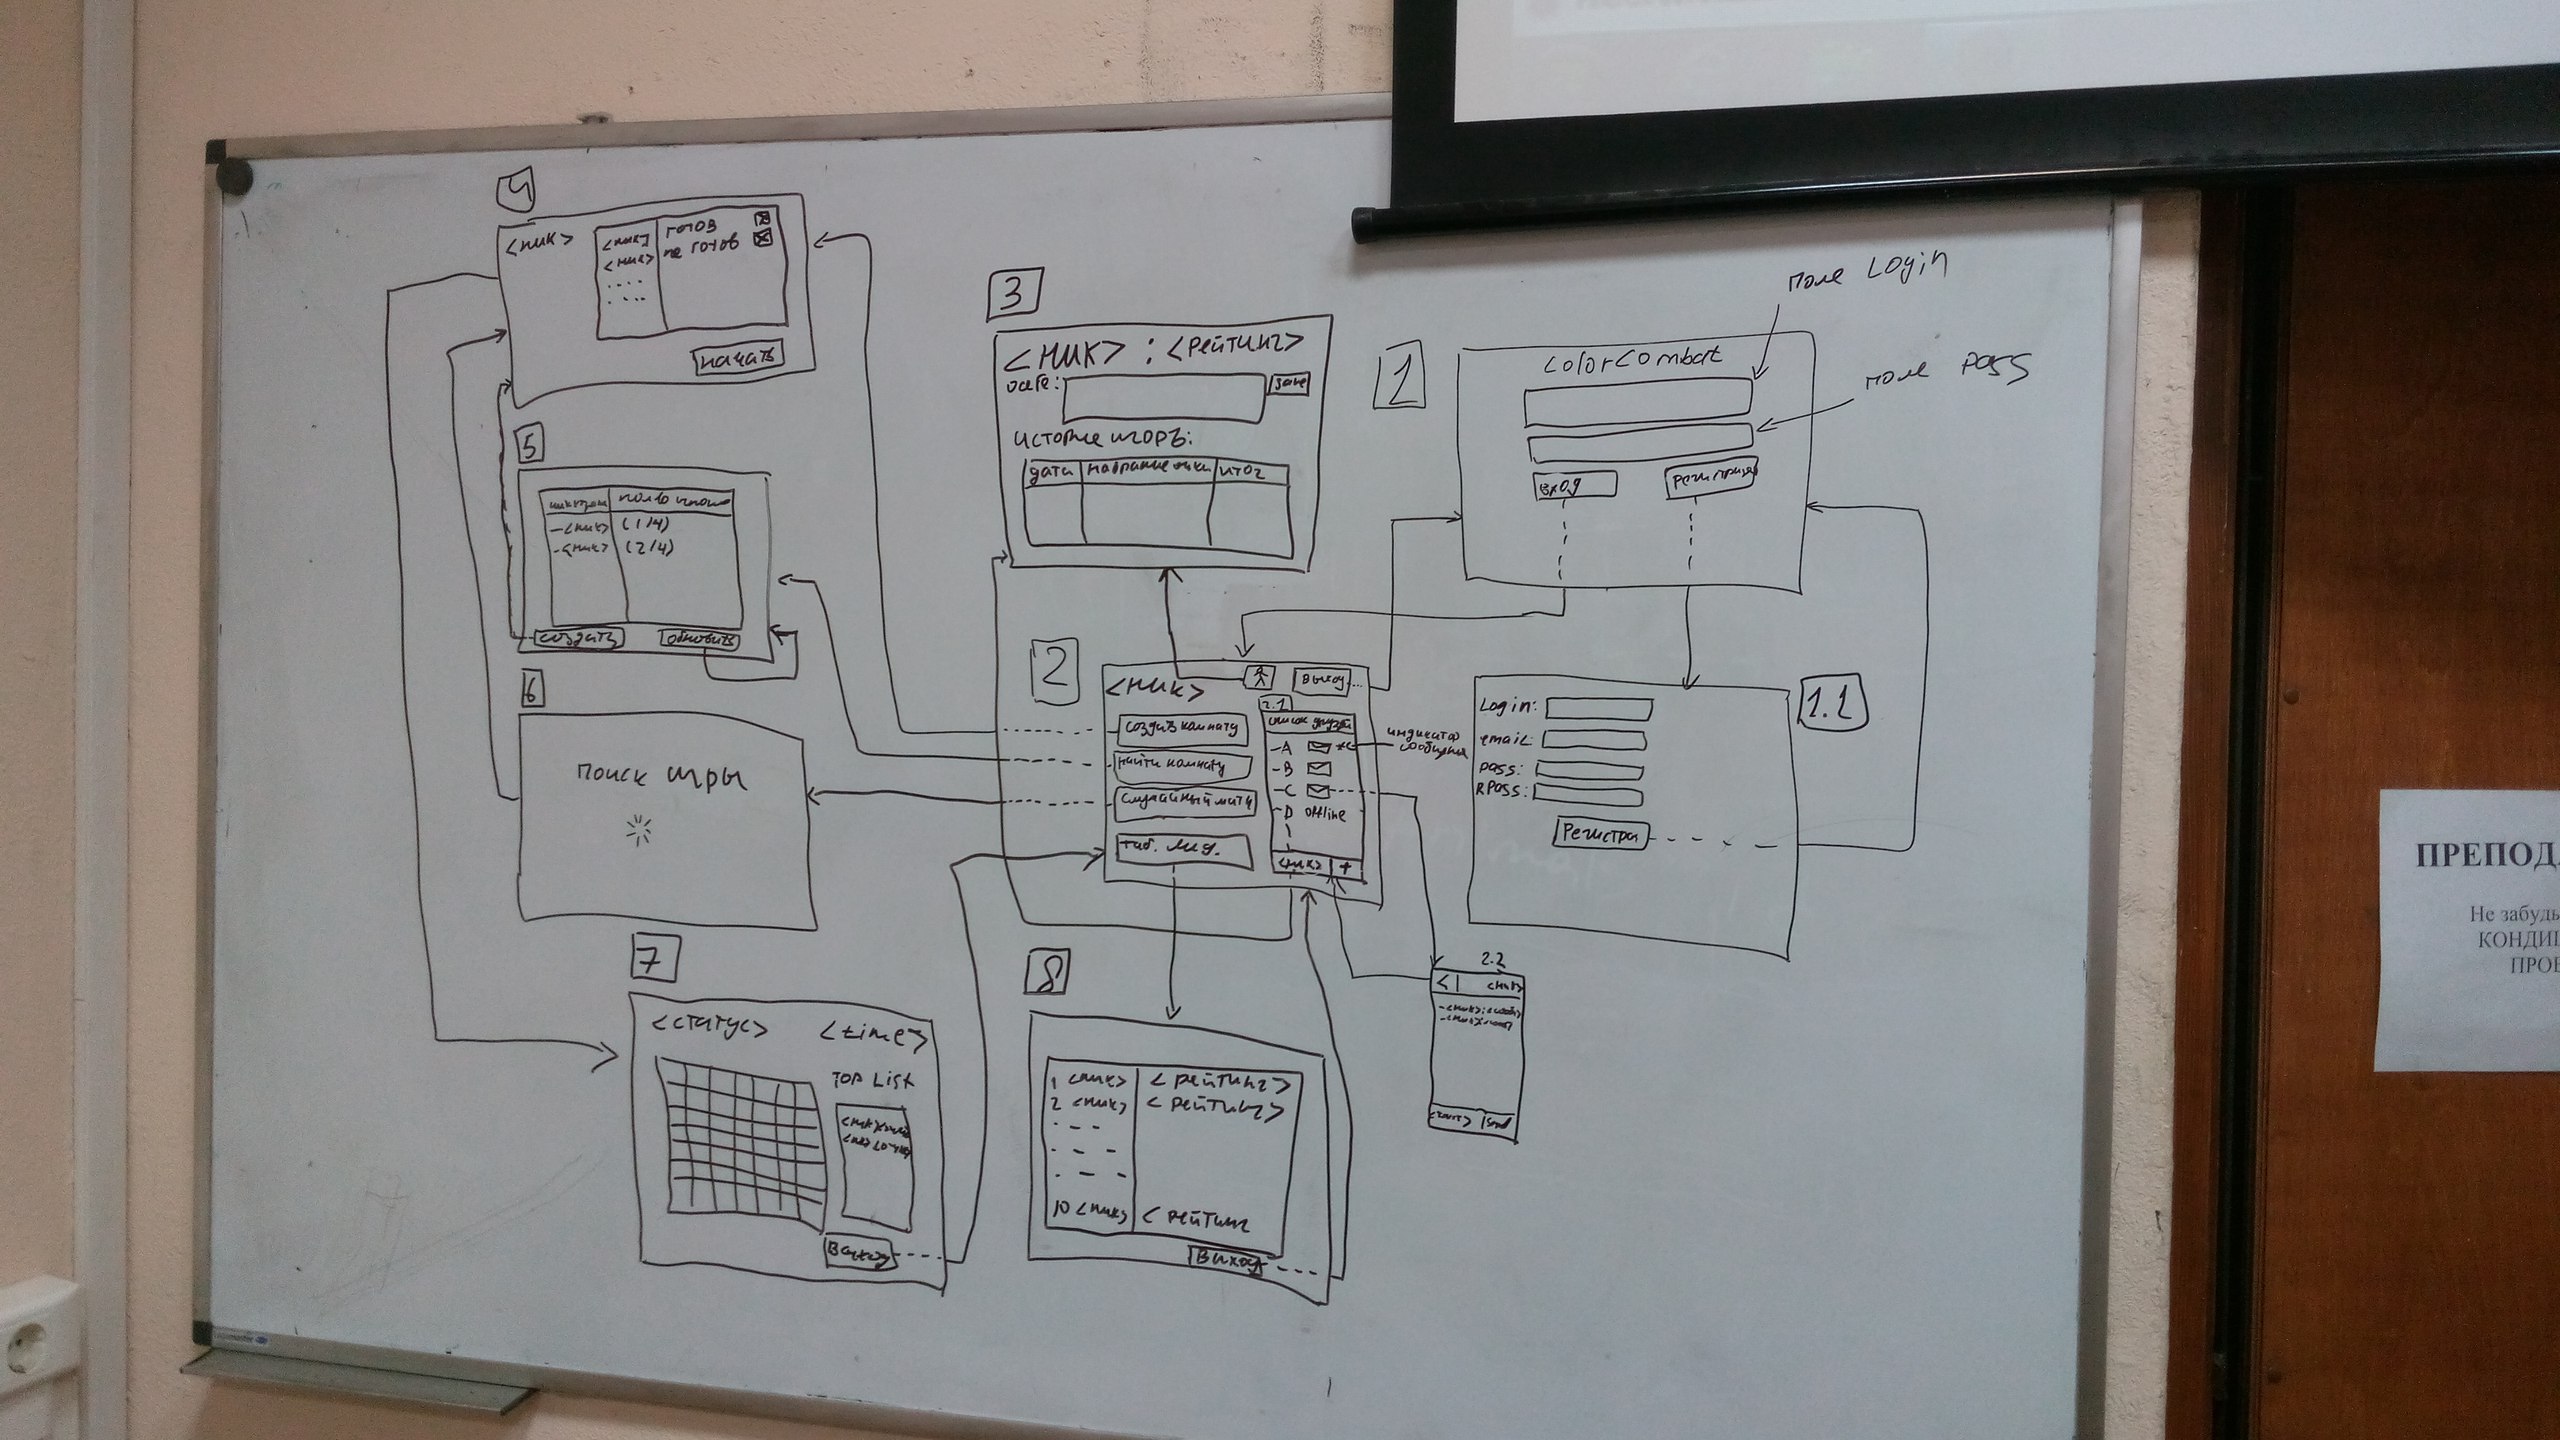 4
<ник>
<ник> готов
<ник> не готов
начать
5
кол-во
-<ник> (1/4)
-<ник> (2/4)
создать
обновить
6
поиск игры
7
<статус> <time>
TOP List
Выход
3
<ник> : <рейтинг>
save
дата
итог
2
<ник>
выход
2.1
создать комнату
найти комнату
случайный матч
таб. лид.
список друзей
-A
-B
-C
-D offline
<ник> +
индикатор
сообщения
8
1 <ник> <рейтинг>
2 <ник> <рейтинг>
10 <ник> <рейтинг
Выход
1
ColorCombat
поле Login
поле pass
вход
регистрация
1.1
Login:
email:
pass:
RPass:
Регистра
2.2
< <ник>
ПРЕПОДА
Не забудь
КОНДИЦ
ПРОВ